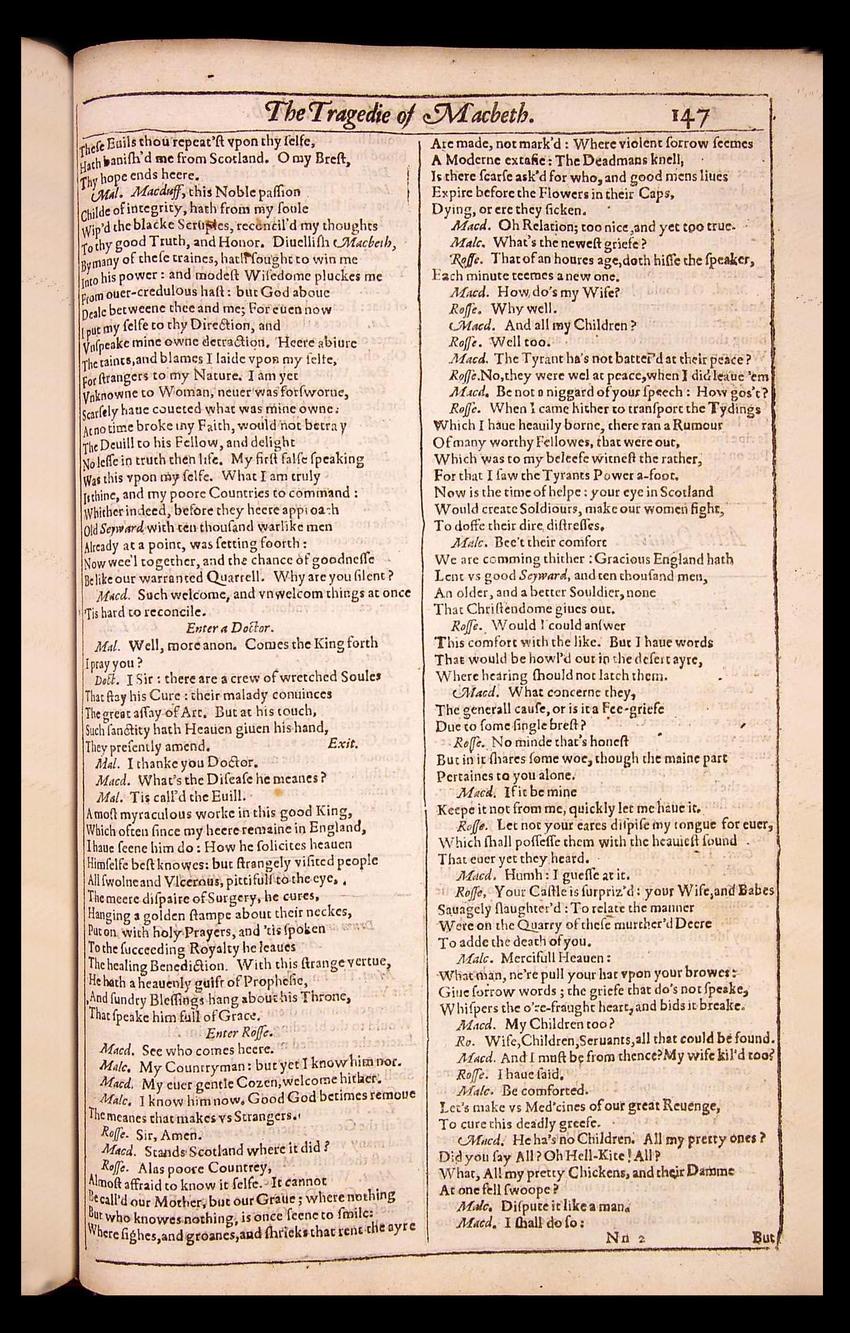 The Tragedie of Macbeth. 147
These Euils thou repeat'ſt vpon thy ſelfe,
Hath baniſh'd me from Scotland. O my Breſt,
Thy hope ends heere.
Mal. Macduff, this Noble paſſion
Childe of integrity, hath from my ſoule
Wip'd the blacke Scruples, reconcil'd my thoughts
To thy good Truth, and Honor. Diuelliſh Macbeth,
By many of theſe traines, hath ſought to win me
Into his power: and modeſt Wiſedome pluckes me
From ouer-credulous haſt: but God aboue
Deale betweene thee and me; For euen now
I put my ſelfe to thy Direction, and
Vnſpeake mine owne detraction. Heere abiure
The taints, and blames I laide vpon my ſelfe,
For ſtrangers to my Nature. I am yet
Vnknowne to Woman, neuer was forſworne,
Scarſely haue coueted what was mine owne.
At no time broke my Faith, would not betray
The Deuill to his Fellow, and delight
No leſſe in truth then life. My firſt falſe ſpeaking
Was this vpon my ſelfe. What I am truly
Is thine, and my poore Countries to command:
Whither indeed, before they heere approach
Old Seyward with ten thouſand warlike men
Already at a point, was ſetting foorth:
Now wee'l together, and the chance of goodneſſe
Be like our warranted Quarrell. Why are you ſilent?
Macd. Such welcome, and vnwelcom things at once
'Tis hard to reconcile.
Enter a Doctor.
Mal. Well, more anon. Comes the King forth
I pray you?
Doct. I Sir: there are a crew of wretched Soules
That ſtay his Cure: their malady conuinces
The great aſſay of Art. But at his touch,
Such ſanctity hath Heauen giuen his hand,
They preſently amend. Exit.
Mal. I thanke you Doctor.
Macd. What's the Diſeaſe he meanes?
Mal. Tis call'd the Euill.
A moſt myraculous worke in this good King,
Which often ſince my heere remaine in England,
I haue ſeene him do: How he ſolicites heauen
Himſelfe beſt knowes: but ſtrangely viſited people
All ſwolne and Vlcerous, pittifull to the eye,
The meere diſpaire of Surgery, he cures,
Hanging a golden ſtampe about their neckes,
Put on with holy Prayers, and 'tis ſpoken
To the ſucceeding Royalty he leaues
The healing Benediction. With this ſtrange vertue,
He hath a heauenly guift of Propheſie,
And ſundry Bleſſings hang about his Throne,
That ſpeake him full of Grace.
Enter Roſſe.
Macd. See who comes heere.
Malc. My Countryman: but yet I know him nor.
Macd. My euer gentle Cozen, welcome hither.
Malc. I know him now. Good God betimes remoue
The meanes that makes vs Strangers.
Roſſe. Sir, Amen.
Macd. Stands Scotland where it did?
Roſſe. Alas poore Countrey,
Almoſt affraid to know it ſelfe. It cannot
Be call'd our Mother, but our Graue; where nothing
But who knowes nothing, is once ſeene to ſmile:
Where ſighes, and groanes, and ſhrieks that rent the ayre
Are made, not mark'd: Where violent ſorrow ſeemes
A Moderne extaſie: The Deadmans knell,
Is there ſcarſe ask'd for who, and good mens liues
Expire before the Flowers in their Caps,
Dying, or ere they ſicken.
Macd. Oh Relation; too nice, and yet too true.
Malc. What's the neweſt griefe?
Roſſe. That of an houres age, doth hiſſe the ſpeaker,
Each minute teemes a new one.
Macd. How do's my Wife?
Roſſe. Why well.
Macd. And all my Children?
Roſſe. Well too.
Macd. The Tyrant ha's not batter'd at their peace?
Roſſe. No, they were wel at peace, when I did leaue 'em
Macd. Be not a niggard of your ſpeech: How gos't?
Roſſe. When I came hither to tranſport the Tydings
Which I haue heauily borne, there ran a Rumour
Of many worthy Fellowes, that were out,
Which was to my beleefe witneſt the rather,
For that I ſaw the Tyrants Power a-foot.
Now is the time of helpe: your eye in Scotland
Would create Soldiours, make our women fight,
To doffe their dire diſtreſſes.
Malc. Bee't their comfort
We are comming thither: Gracious England hath
Lent vs good Seyward, and ten thouſand men,
An older, and a better Souldier, none
That Chriſtendome giues out.
Roſſe. Would I could anſwer
This comfort with the like. But I haue words
That would be howl'd out in the deſert ayre,
Where hearing ſhould not latch them.
Macd. What concerne they,
The generall cauſe, or is it a Fee-griefe
Due to ſome ſingle breſt?
Roſſe. No minde that's honeſt
But in it ſhares ſome woe, though the maine part
Pertaines to you alone.
Macd. If it be mine
Keepe it not from me, quickly let me haue it.
Roſſe. Let not your eares diſpiſe my tongue for euer,
Which ſhall poſſeſſe them with the heauieſt ſound
That euer yet they heard.
Macd. Humh: I gueſſe at it.
Roſſe. Your Caſtle is ſurpriz'd: your Wife, and Babes
Sauagely ſlaughter'd: To relate the manner
Were on the Quarry of theſe murther'd Deere
To adde the death of you.
Malc. Mercifull Heauen:
What man, ne're pull your hat vpon your browes:
Giue ſorrow words; the griefe that do's not ſpeake,
Whiſpers the o're-fraught heart, and bids it breake.
Macd. My Children too?
Ro. Wife, Children, Seruants, all that could be found.
Macd. And I muſt be from thence? My wife kil'd too?
Roſſe. I haue ſaid.
Malc. Be comforted.
Let's make vs Med'cines of our great Reuenge,
To cure this deadly greefe.
Macd. He ha's no Children. All my pretty ones?
Did you ſay All? Oh Hell-Kite! All?
What, All my pretty Chickens, and their Damme
At one fell ſwoope?
Malc. Diſpute it like a man.
Macd. I ſhall do ſo:
Nn 2 But